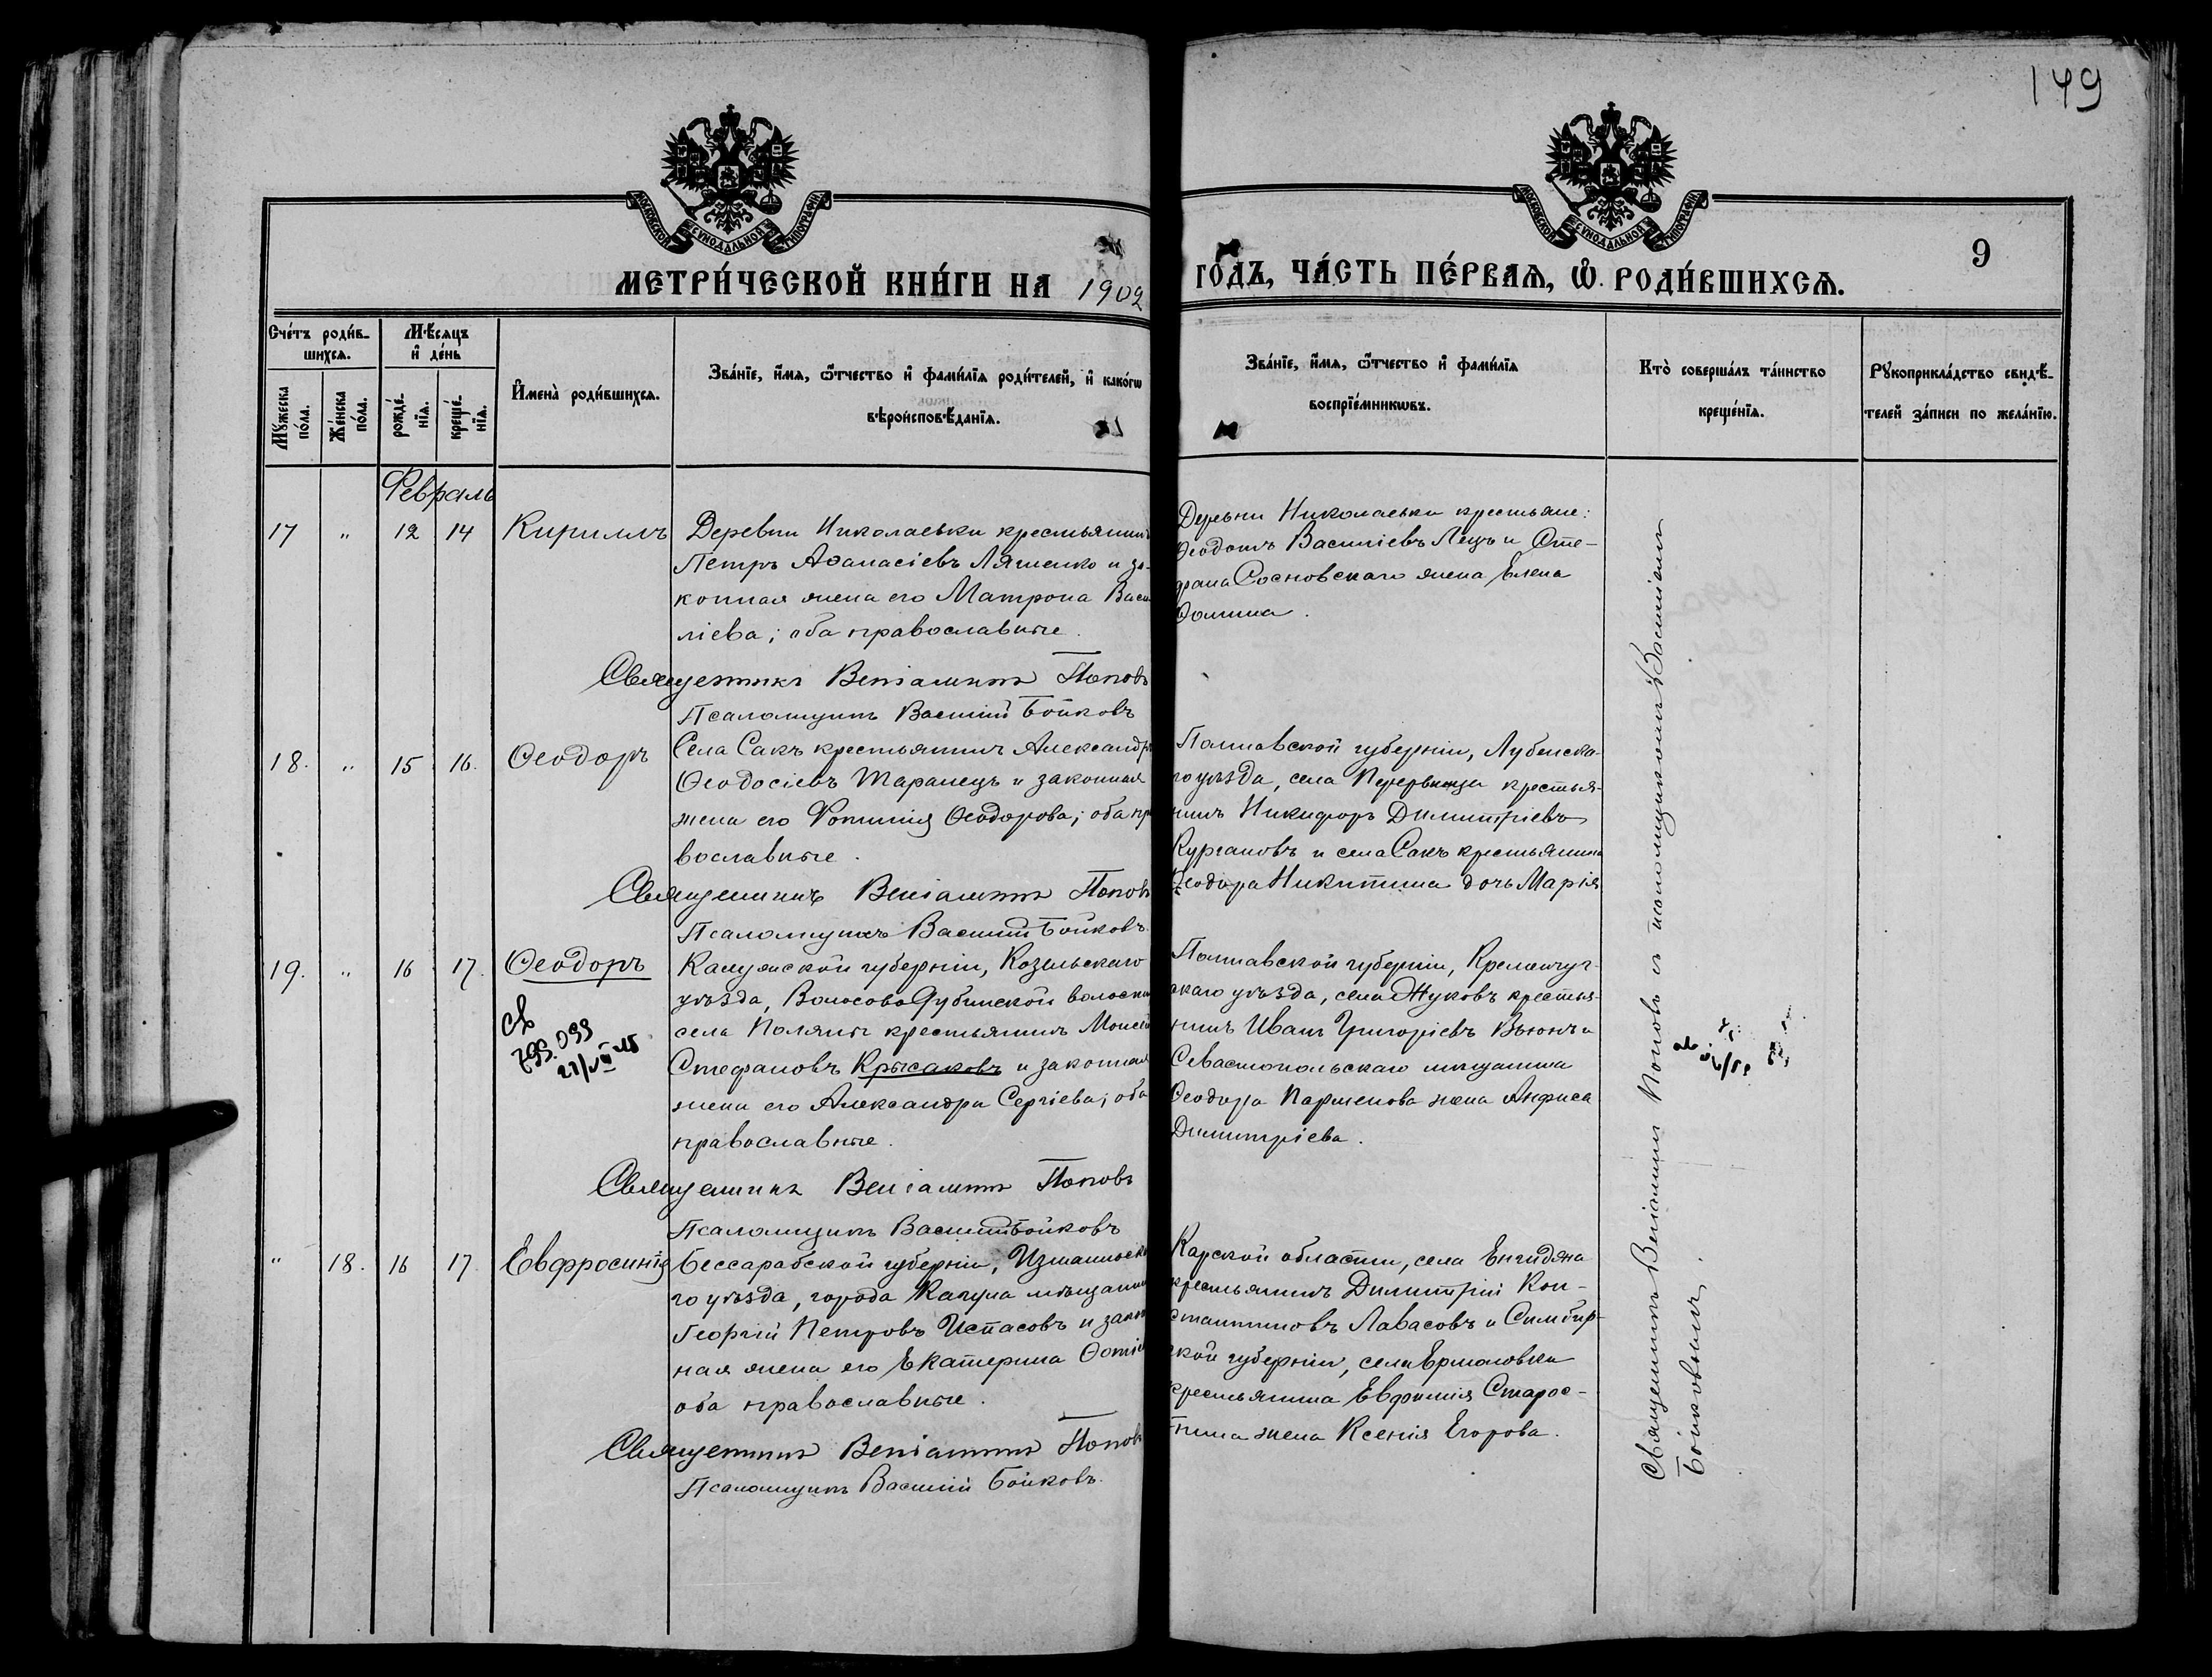 149
МОСКОВСКОЙ СѴНОДАЛЬНОЙ ТИПОГРАФІИ
МОСКОВСКОЙ СѴНОДАЛЬНОЙ ТИПОГРАФІИ
9
МЕТРИ́ЧЕСКОЙ КНИ́ГИ НА 1902 ГО́ДЪ, ЧА́СТЬ ПЕ́РВАѦ, Ѡ҆ РОДИ́ВШИХСѦ.
Сче́тъ роди́в-
шихсѧ.
Мꙋ́жеска по́ла.
Же́нска по́ла.
Мѣ́сѧцъ
и҆ де́нь
рожде́-
нїѧ.
креще́-
нїѧ.
И҆мена̀ роди́вшихсѧ.
Зва́нїе, и҆́мѧ, ѻ҆́тчество и҆ фамѝлїѧ роди́телей, и҆ како́гѡ
вѣроисповѣ́данїѧ.
Зва́нїе, и҆́мѧ, ѻ҆́тчество и҆ фами́лїѧ
воспрїе́мникѡвъ.
Кто̀ соверша́лъ та́инство
креще́нїѧ.
Рꙋкоприкла́дство свидѣ́-
телей за́писи по жела́нїю.
Февраль
17 " 12 14 Кириллъ
Деревни Николаевки крестьянинъ
Петръ Аѳанасіевъ Ляшенко и за-
конная жена его Матрона Васи
ліева; оба православные.
Священникъ Веніаминъ Поповъ
Псаломщикъ Василій Бойковъ
Деревни Николаевки крестьяне:
Ѳеодотъ Василіевъ Лецъ и Сте-
фана Сосновскаго жена Елена
Ѳомина.
18. " 15 16. Ѳеодоръ
Села Сакъ крестьянинъ Александръ
Ѳеодосіевъ Таранецъ и законная
жена его Фотинія Ѳеодорова; оба пра
вославные.
Священникъ Веніаминъ Поповъ
Псаломщикъ Василий Бойковъ
Полтавской губерніи, Лубенска-
го уѣзда, села крестья-
нинъ Никифоръ Димитріевъ
Кургановъ и села Сакъ крестьянина
Ѳеодора Никитина дочь Марія
19. " 16 17. Ѳеодоръ
Калужской губерніи, Козельскаго
уѣзда, Волосово Дубинской волости
села Поляны крестьянинъ Моисей
Стефановъ Крысаковъ и законная
жена его Александра Сергіева; оба
православные.
Священникъ Веніаминъ Поповъ
Псаломщикъ Василій Бойковъ
Полтавской губерніи, Кременчуг-
скаго уѣзда, села Жуковъ крестья-
нинъ Иванъ Григоріевъ Вьюнъ и
Севастопольскаго мѣщанина
Ѳеодора Парменова жена Анфиса
Димитріева.
" 18. 16 17 Евфросинія
Бессарабской губерніи, Измаильска
го уѣзда, города Кагула мѣщанинъ
Георгій Петровъ Испасовъ и закон
ная жена его Екатерина
оба православные.
Священникъ Веніаминъ Поповъ
Псаломщикъ Василій Бойковъ.
Карской области, села
крестьянинъ Димитрій Кон-
стантиновъ Лавасовъ и Симбир-
ской губерніи, села Ермоловки
крестьянина Евфимія Старос-
тина жена Ксенія Егорова.
Священникъ Веніаминъ Поповъ съ псаломщикомъ Василіемъ
Бойковымъ.